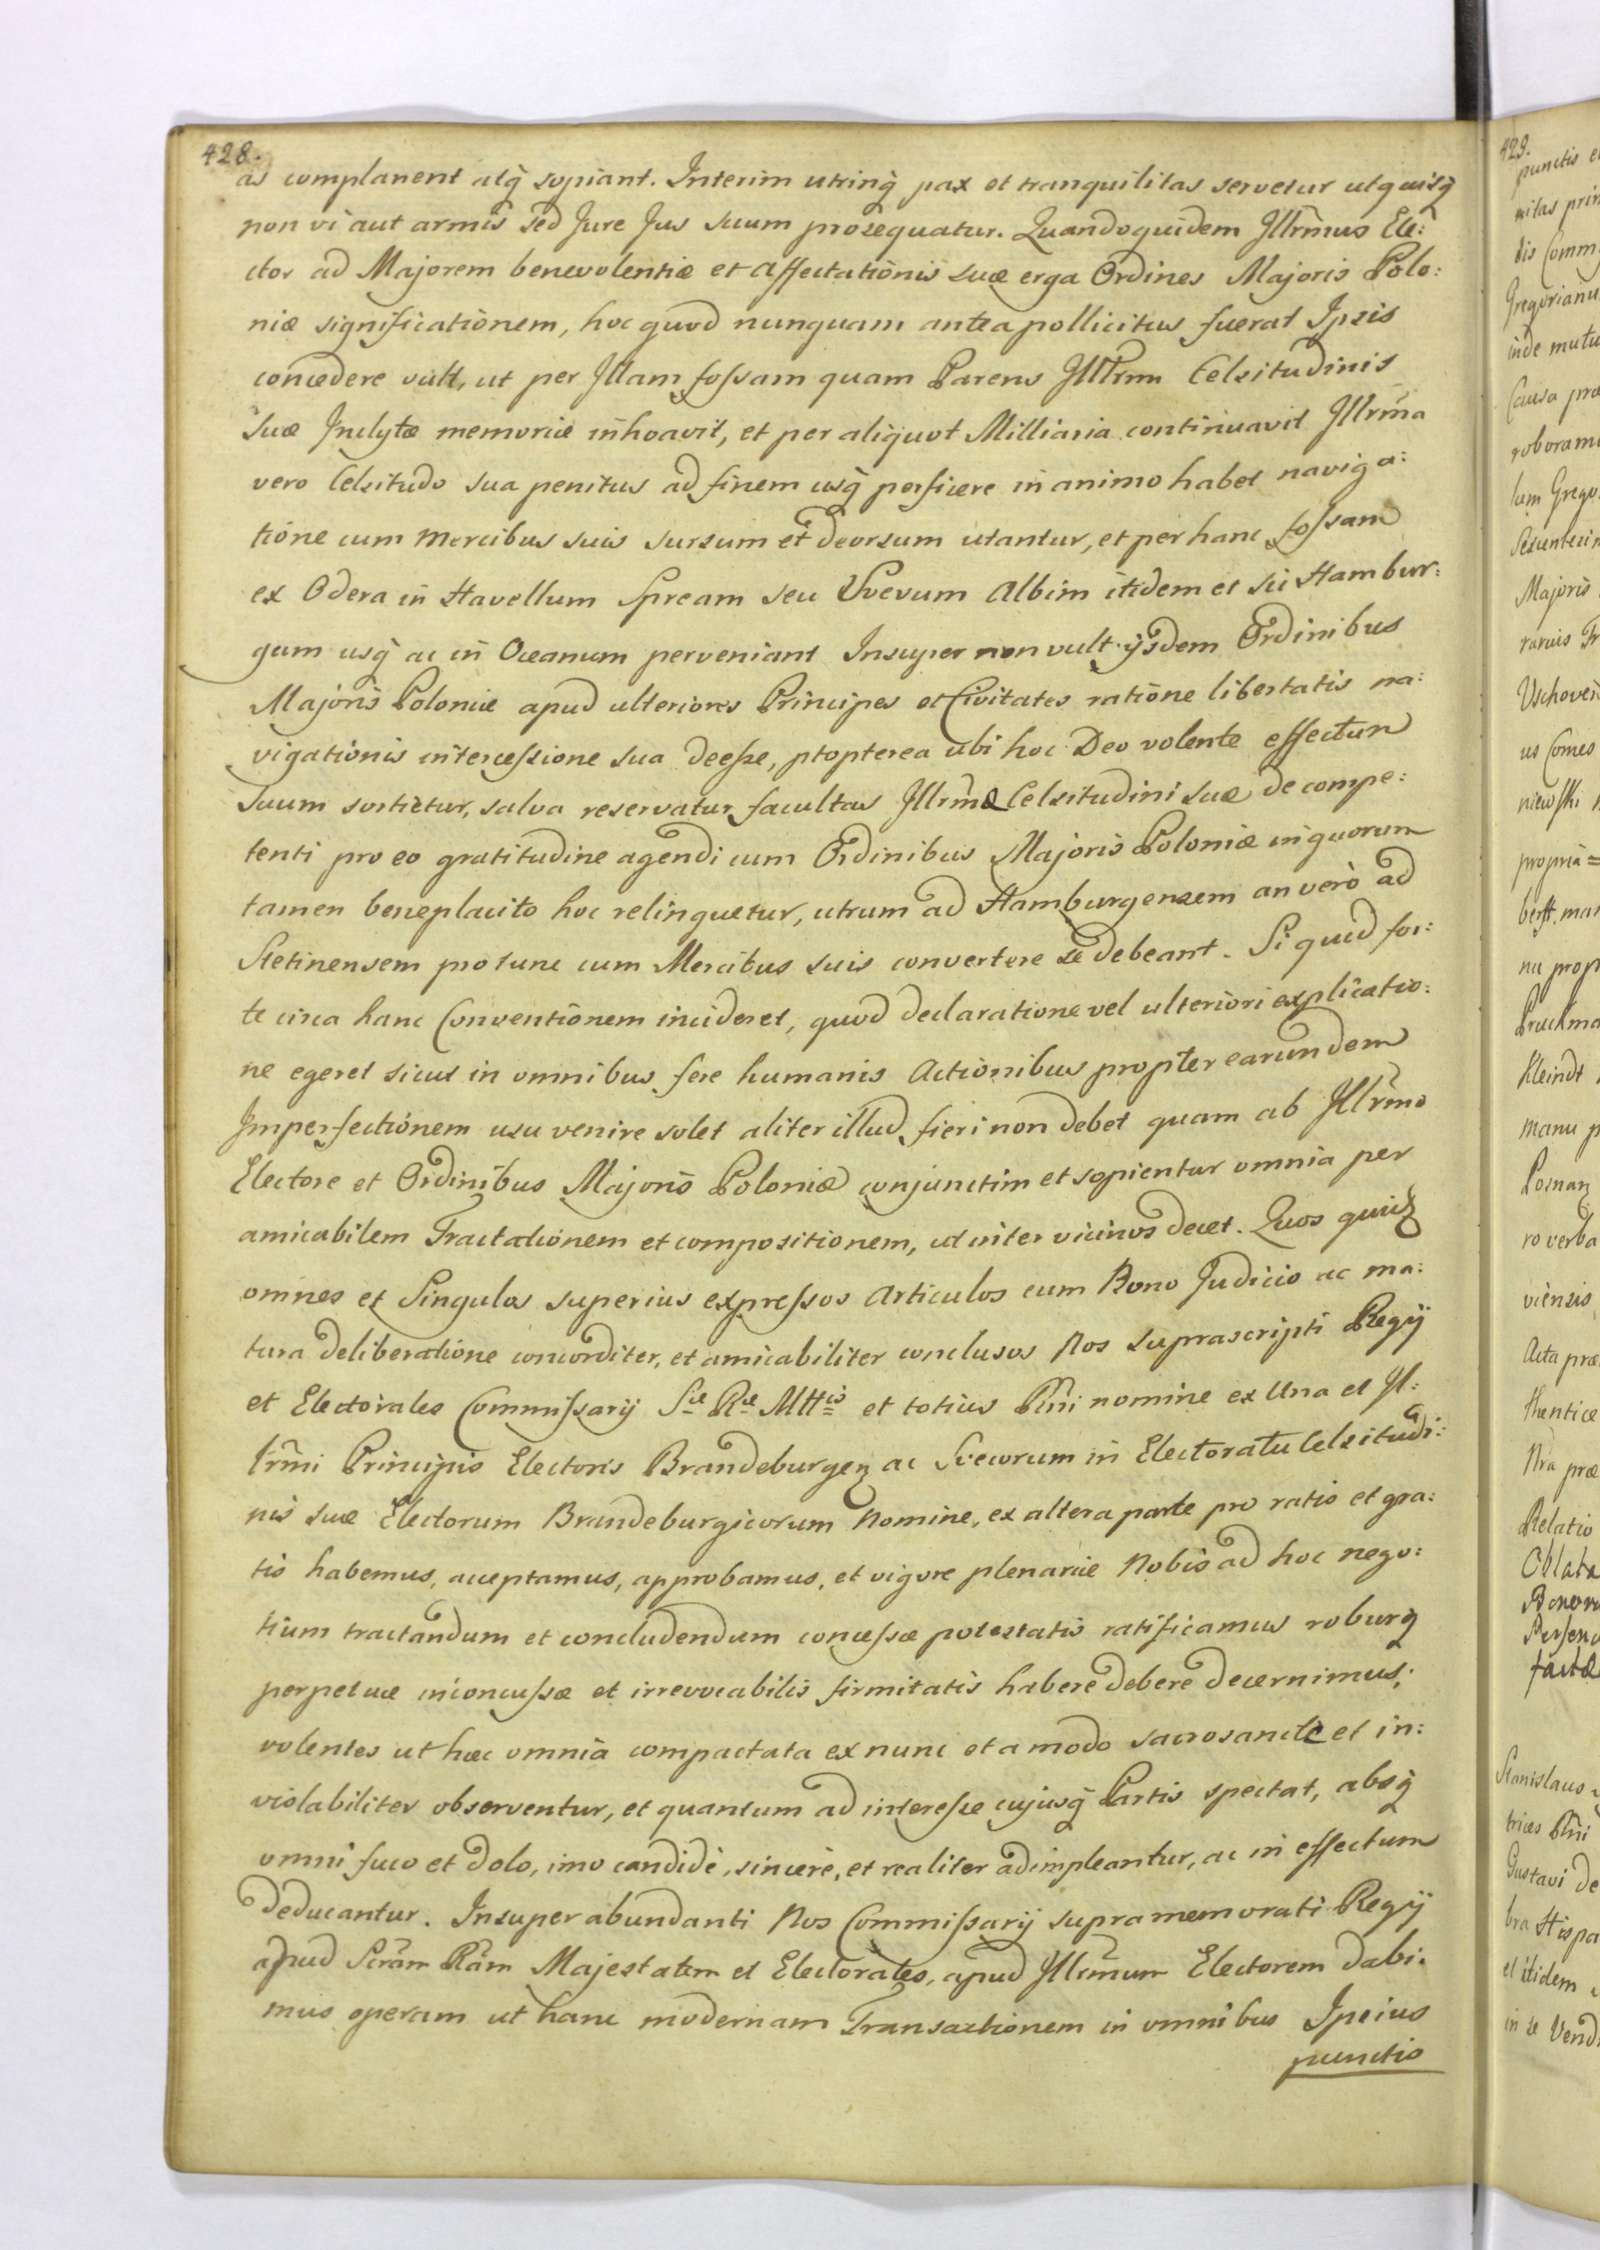 428.
as complanent atq̃ sopiant. Interim utrinq̃ pax et tranquilitas servetur utquisq̃
non vi aut armis sed Jure Jus suum prosequatur. Quandoquidem Jllr̃mus Ele:
ctor ad Majorem benevolentiæ et affectationis suæ erga Ordines Majoris Polo:
niæ significationem, hoc quod nunquam antea pollicitus fuerat Ipsis
concedere vult, ut per Jllam fossam quam Parens Jlllrm̃ Celsitudinis
suæ Jnclytæ memoriæ inhoavit, et per aliquot Milliaria continuavit Jllrm̃a
vero Celsitudo sua penitus ad finem usq̃ perficere in animo habet naviga:
tione cum Mercibus suis sursum et deorsum utantur, et per hanc fossam
ex Odera in Havellum Spream seu Vvevum Albim itidem et sic Hambur:
gum usq̃ ac in Oceanum perveniant Insuper non vult ijsdem Ordinibus
Majoris Poloniæ apud ulteriores Principes et Civitates ratione libertatis na:
vigationis intercessione sua deesse, ptopterea ubi hoc Deo volente effectum
suum sortietur, salva reservatur facultas Jllrm̃æ Celsitudini suæ de compe:
tenti pro eo gratitudine agendi cum Ordinibus Majoris Poloniæ in quorum
tamen beneplacito hoc relinquetur, utrum ad Hamburgensem an verò ad
Stetinensem protunc cum Mercibus suis convertere se debeant. Si quid for:
te circa hanc Conventionem incideret, quod declaratione vel ulteriori explicatio:
ne egeret sicut in omnibus fere humanis Actionibus propter earundem
Jmperfectionem usu venire solet aliter illud fieri non debet quam ab Jllr̃mo
Electore et Ordinibus Majoris Poloniæ conjunctim et sopientur omnia per
amicabilem Tractationem et compositionem, ut inter vicinos decet. Quos
omnes et Singulos superius expressos Articulos cum Bono Judicio ac ma:
tura deliberatione concorditer, et amicabiliter conclusos Nos suprascripti Regij
et Electorales Commissarij Sæ Ræ Mttis et totius Rñi nomine ex Una et Jl:
lrm̃i Principis Electoris Brandeburgen ac Svecorum in Electoratu Celsitudi:
nis suæ Electorum Brandeburgicorum Nomine, ex altera parte pro ratis et gra:
tis habemus, acceptamus, approbamus, et vigore plenariæ Nobis ad hoc nego:
tium tractandum et concludendum concessæ potestatis ratificamus roburq̃
perpetuæ inconcussæ et irrevocabilis firmitatis habere debere decernimus;
volentes ut hæc omnia compactata ex nunc et a modo sacrosancte et in:
violabiliter observentur, et quantum ad interesse cujusq̃ Partis spectat, absq̃
omni fuco et dolo, imo candidè, sincerè, et realiter adimpleantur, ac in effectum
deducantur. Insuper abundanti Nos Commissarij supramemorati Regij
apud Scrãm Rãm Majestatem et Electorales, apud Jllrm̃um Electorem dabi:
mus operam ut hanc modernam Transactionem in omnibus Ipsius
punctis
429.
punctis
Gregorianu
inde mutu
Causa præ
roboram
lum Grego
Majoris
us Comes
propria=
manu p
Posnan
ro verba
viensis
Acta præ
thenticæ
Nrã præ
Relatio
Oblatæ
factæ
Stanislaus
Gustavi de
bra Hispa
et itidem
in se Vend